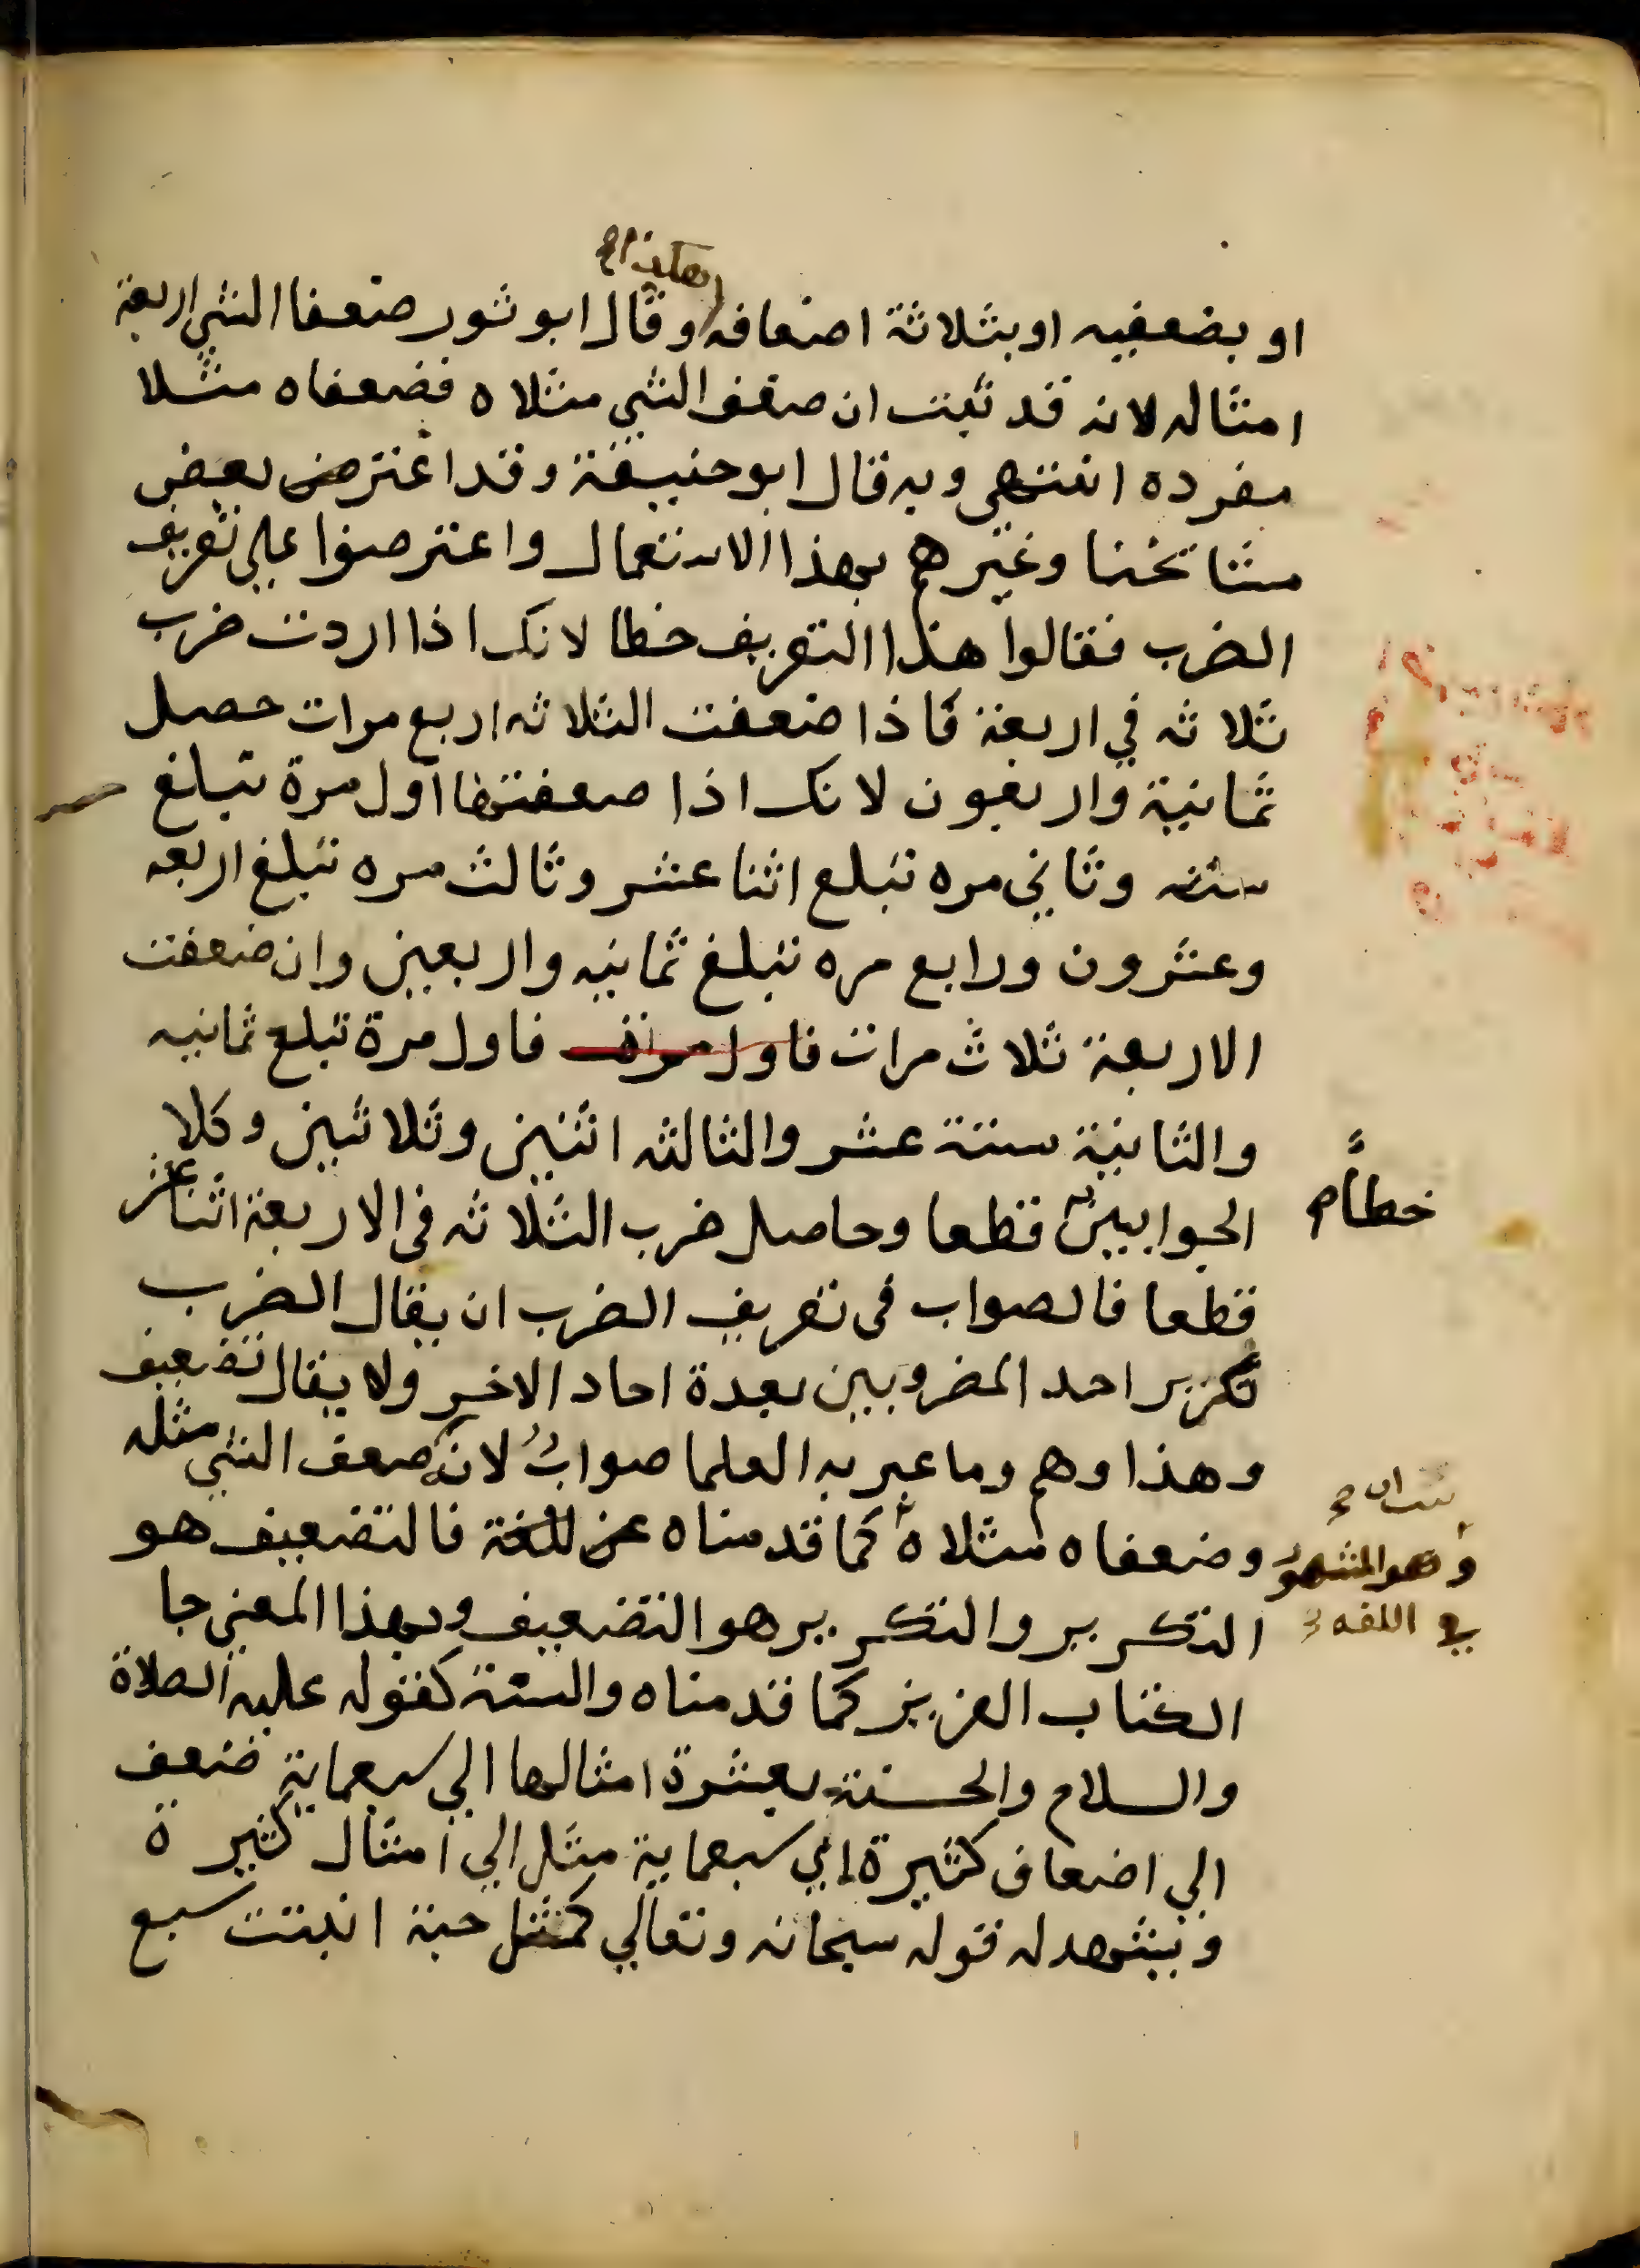 او بضعفيه او بثلاثة اضعافه وقال ابو ثور ضعفا الشي اربعة
امثاله لانه قد ثبت ان ضعف الشي مثلاه فضعفاه مثلا
مفرده انتهى وبه قال ابو حنيفة وقد اعترض بعض
مشائخنا وغيرهم بهذا الاستعمال واعترضوا علي تعريف
الضرب فقالوا هذا التعريف خطا لانك اذا اردت ضرب
ثلاثه في اربعة فاذا ضعفت الثلاثه اربع مرات حصل
ثمانية واربعون لانك اذا ضعفتها اول مرة تبلغ
سته وثاني مره تبلغ اثنا عشر وثالث مره تبلغ اربعه
وعشرون ورابع مره تبلغ ثمانيه واربعين وان ضعفت
الاربعة ثلاث مرات فاول مرة تبلغ ثمانيه
والثانية ستة عشر والثالثه اثنين وثلاثين وكلا
الجوابين قطعا وحاصل ضرب الثلاثه فى الاربعة اثنا عشر
خطأ
قطعا فالصواب فى تعريف الضرب ان يقال الضرب
تكرير احد المضروبين بعدة احاد الاخر ولا يقال تضعيف
وهذا وهم وما عبر به العلما صواب لان ضعف الشي مثله
وضعفاه مثلاه كما قدمناه عن اللغة فالتضعيف هو
وهو المشهور
في اللغه
التكرير والتكرير هو التضعيف وبهذا المعني جا
الكتاب العزيز كما قدمناه والسنة كقوله عليه الصلاة
والسلام والحسنة بعشرة امثالها الي سبعماية ضعف
الي اضعاف كثيرة اي سبعماية مثل الي امثال كثيرة
ويشهد له قوله سبحانه وتعالي كمثل حبة انبتت سبع